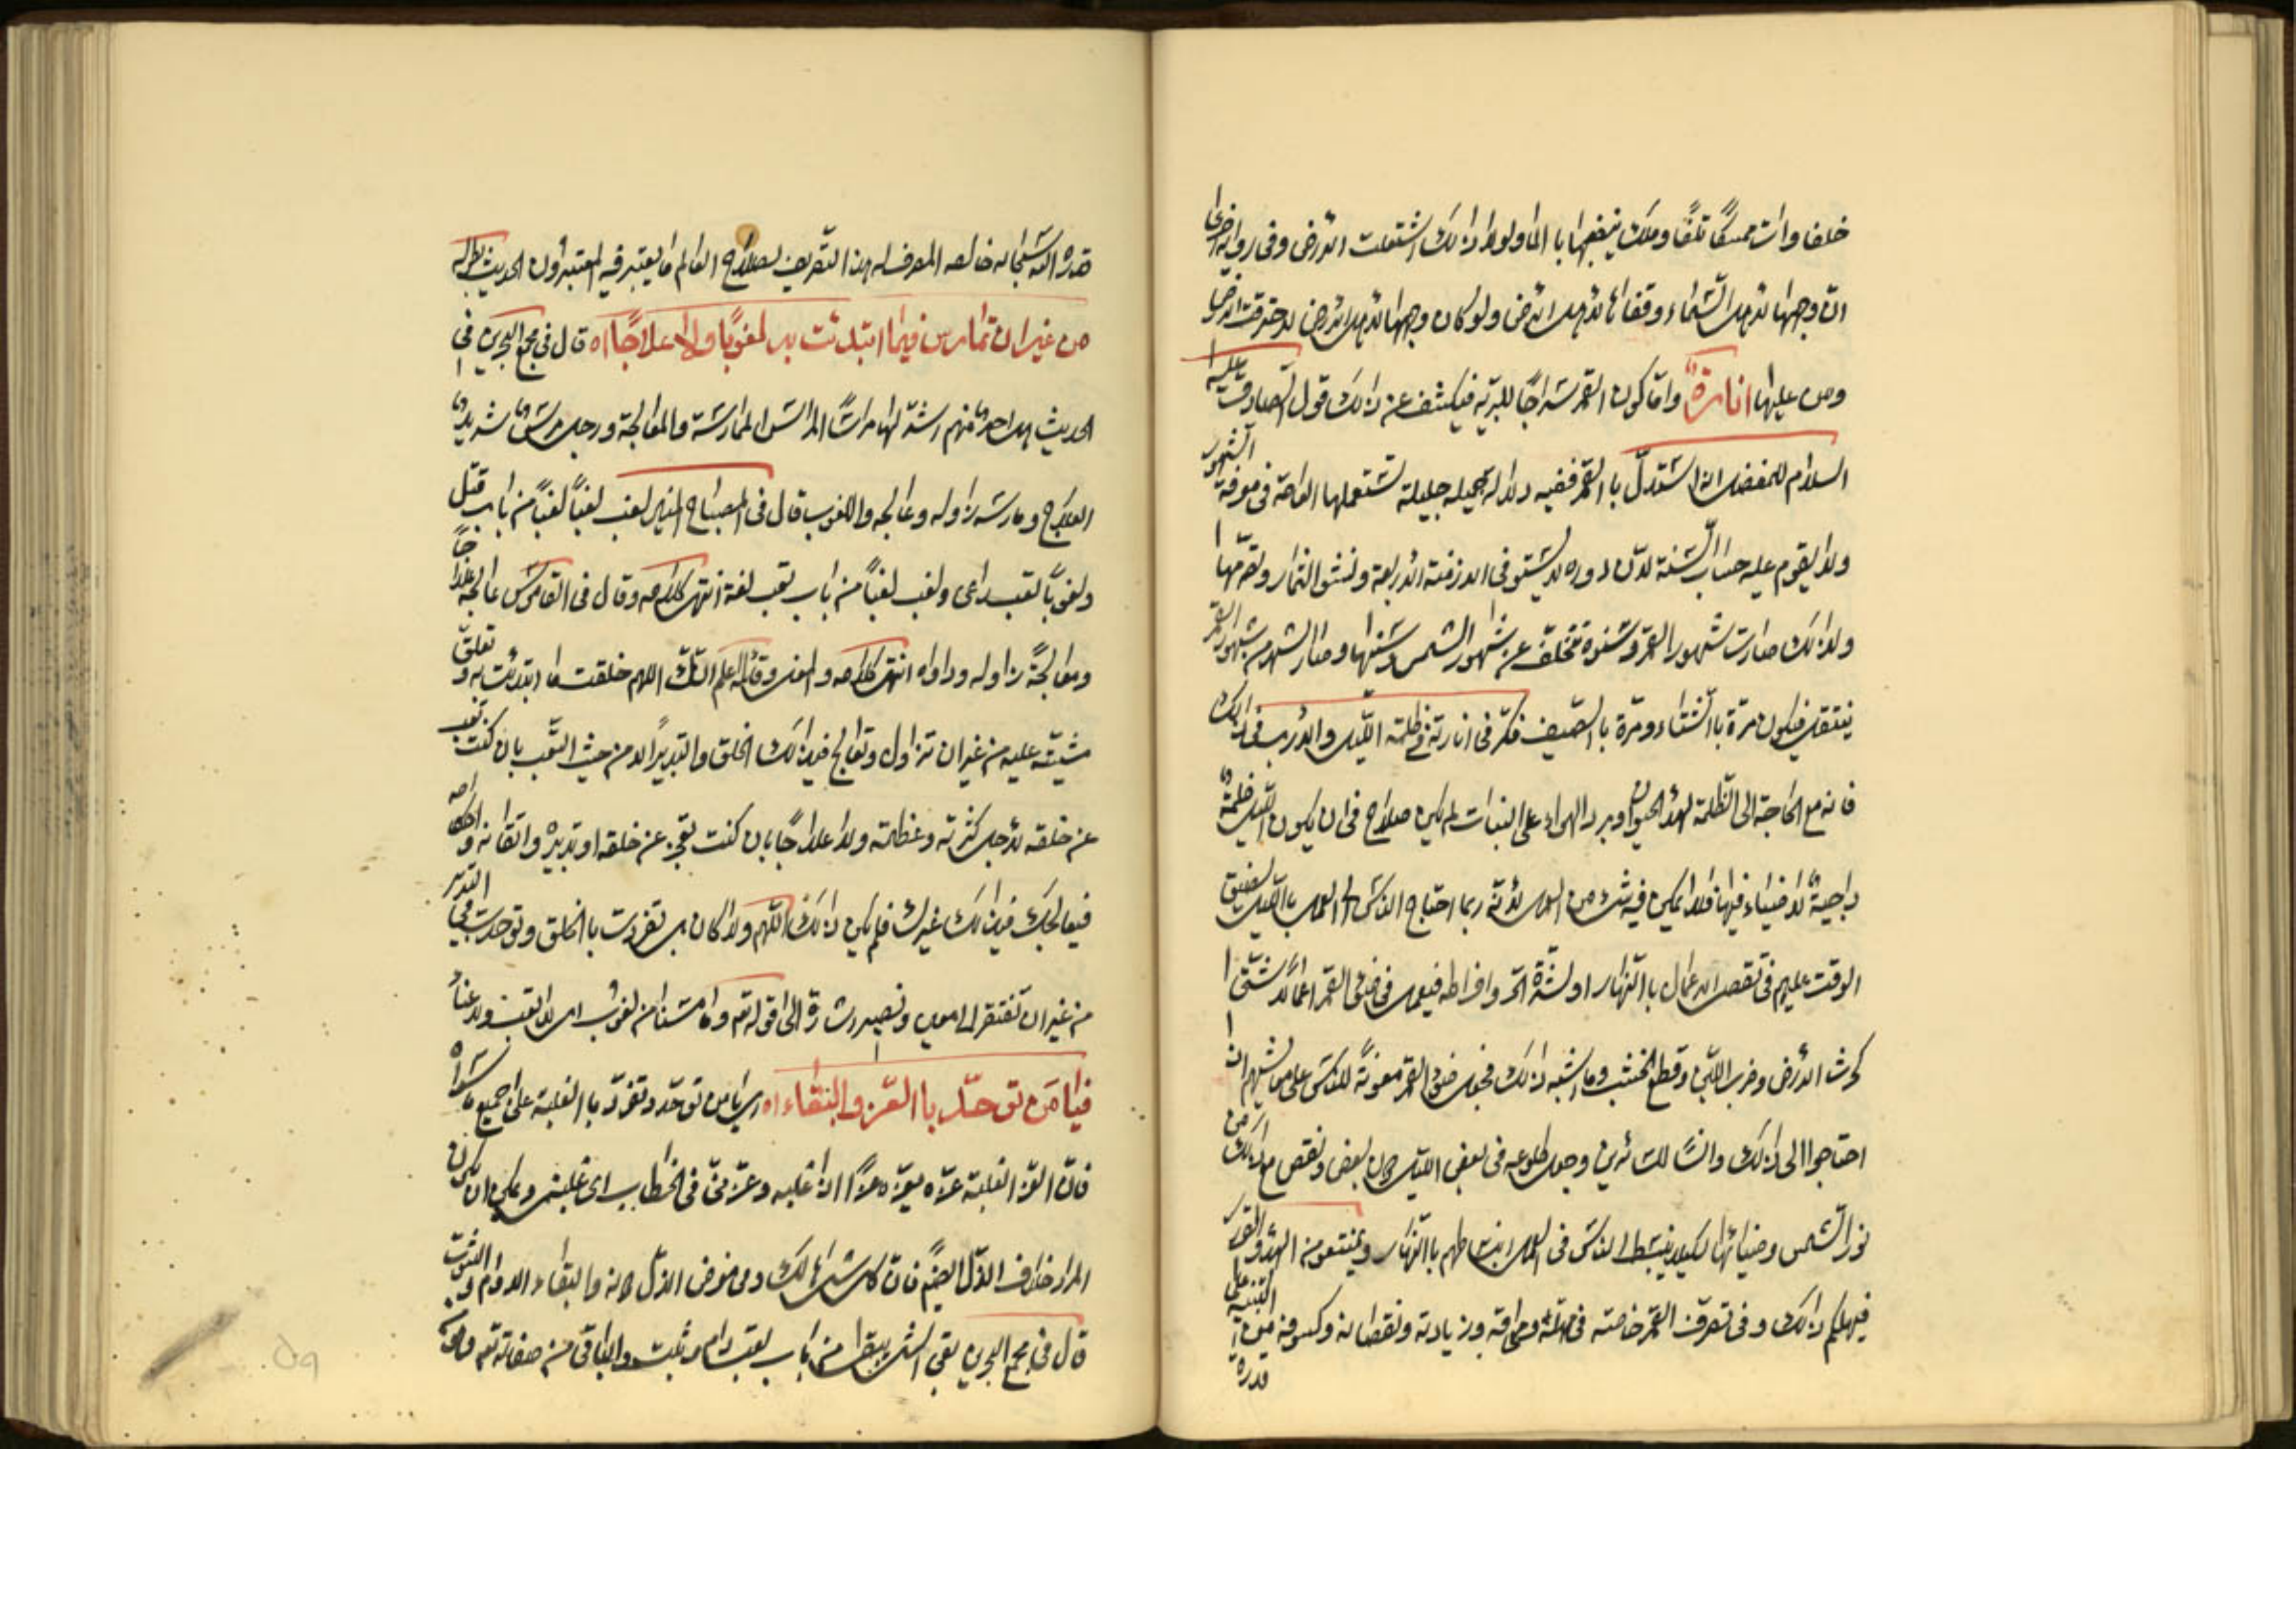 خلفا وات ممسكًا تلفًا وملك ينفضها با الما ولولا ذالك اشتعلت الارض وفى رواية اخرى
ان وجهها لاهل السّماء وقفاها لاهل الارض ولو كان وجهها لاهل الارض لاحترقت الارض
ومن عليها انارة وامّا كون القمر سراجًا للبريّة فيكشف عن ذالك قول الصادق عليه
السلام للمفضل استدلّ با القمر ففيه دلالة جليلة تستعملها العامّة فى معرفة الشهور
ولا يقوم عليه حساب السّنة لانّ دوره لا يستوفى الازمنة الاربعة ونشو الثمار وتصرّمها
ولذالك صارت شهور القمر وسنوه تتخلّف عن شهور الشمس وسنيها وصار الشهر من شهور القمر
ينتقل فيكون مرّة با الشّتاء ومرّة با الصّيف فكّر فى انارته فى ظلمة اللّيل والارب فى ذالك
فانه مع الحاجة الى الظّلمة لهدء الحيوان وبرد الهواء على النبات لم يكن صلاح فى ان يكون اللّيل ظلمة
داجية لا ضياء فيها فلا يمكن فيه شئ من العمل لانّه ربما احتاج الناس الى العمل با اللّيل لضيق
الوقت عليهم فى تقصى الاعمال با النّهار او لشدّة الحرّ وافراطه فيعمل فى ضوء القمر اعمالًا شتّى
كحرث الارض وضرب اللّبن وقطع الخشب وما اشبه ذالك فجعل ضوء القمر معونة للناس على معاشهم اذا
احتاجوا الى ذالك وانسًا للسّائرين وجعل طلوعه فى بعض اللّيل دون بعض ونقص مع ذالك من
نور الشّمس وضيائها لكيلا ينبسط الناس فى العمل انبساطهم با النّهار ويمتنعو من الهدو والقرار
فيهلكهم ذالك وفى تصرّف القمر خاصّة فى مهلّه ومحاقه وزيادته ونقصانه وكسوفه من التنبيه على
قدرة
قدرة اللّه سبحانه خالقه المصرف له هذا التصريف لصلاح العالم ما يعتبر فيه المعتبرون الحديث بطوله
من غير ان تمارس فيما ابتدئت به لغوبًا ولا علاجًا اه قال فى مجمع البحرين فى
الحديث مراسًا المراس الممارسة والمعالجة ورجل مرس شديد
العلاج ومارسه زاوله وعالجه واللغوب قال فى المصباح المنير لغب لغبًا من باب قتل
ولغوبًا تعب واعى ولغب لغبًا من باب تعب لغة انتهى كلامه وقال فى القاموس عالجه علاجًا
ومعالجة زاوله وداواه انتهى كلامه والمعنى واللّه العالم انّك اللهم خلقت ما ابتدئت به وتعلّق
مشيّته عليه من غير ان تزاول وتعالج فى ذالك الخلق والتدبير لا من حيث التّعب بان كنت تعب
عن خلقه لاجل كثرته وعظمته ولا علاجًا بان كنت تعجز عن خلقه او تدبيره واتقانه واحكامه
فيعالجك فى ذالك غيرك فلم يكن ذالك اللّهم ولا كان بل تفردت با الخلق وتوحدت فى التدبير
من غير ان تفتقر الى معين ونصير اشارة الى قوله تع وما مسّنا من لغوب اى لا تعب ولا عناء
فيا من توحّد با العزّ والبقاء اه اى يا من توحّد وتفرّد با الغلبة على جميع ما سواه
فانّ العزّ الغلبة عزّه يعزّه عزًّا اذا غلبه وعزّنى فى الخطاب اى غلبنى ويمكن ان يكون
المراد خلاف الذّل ايضًا فان كل شئ هالك وفى معرض الذلّ دونه والبقاء الدوام والثبوت
قال فى مجمع البحرين بقى الشئ يبقا من باب تعب دام وثبت والباقى من صفاته تع وهو